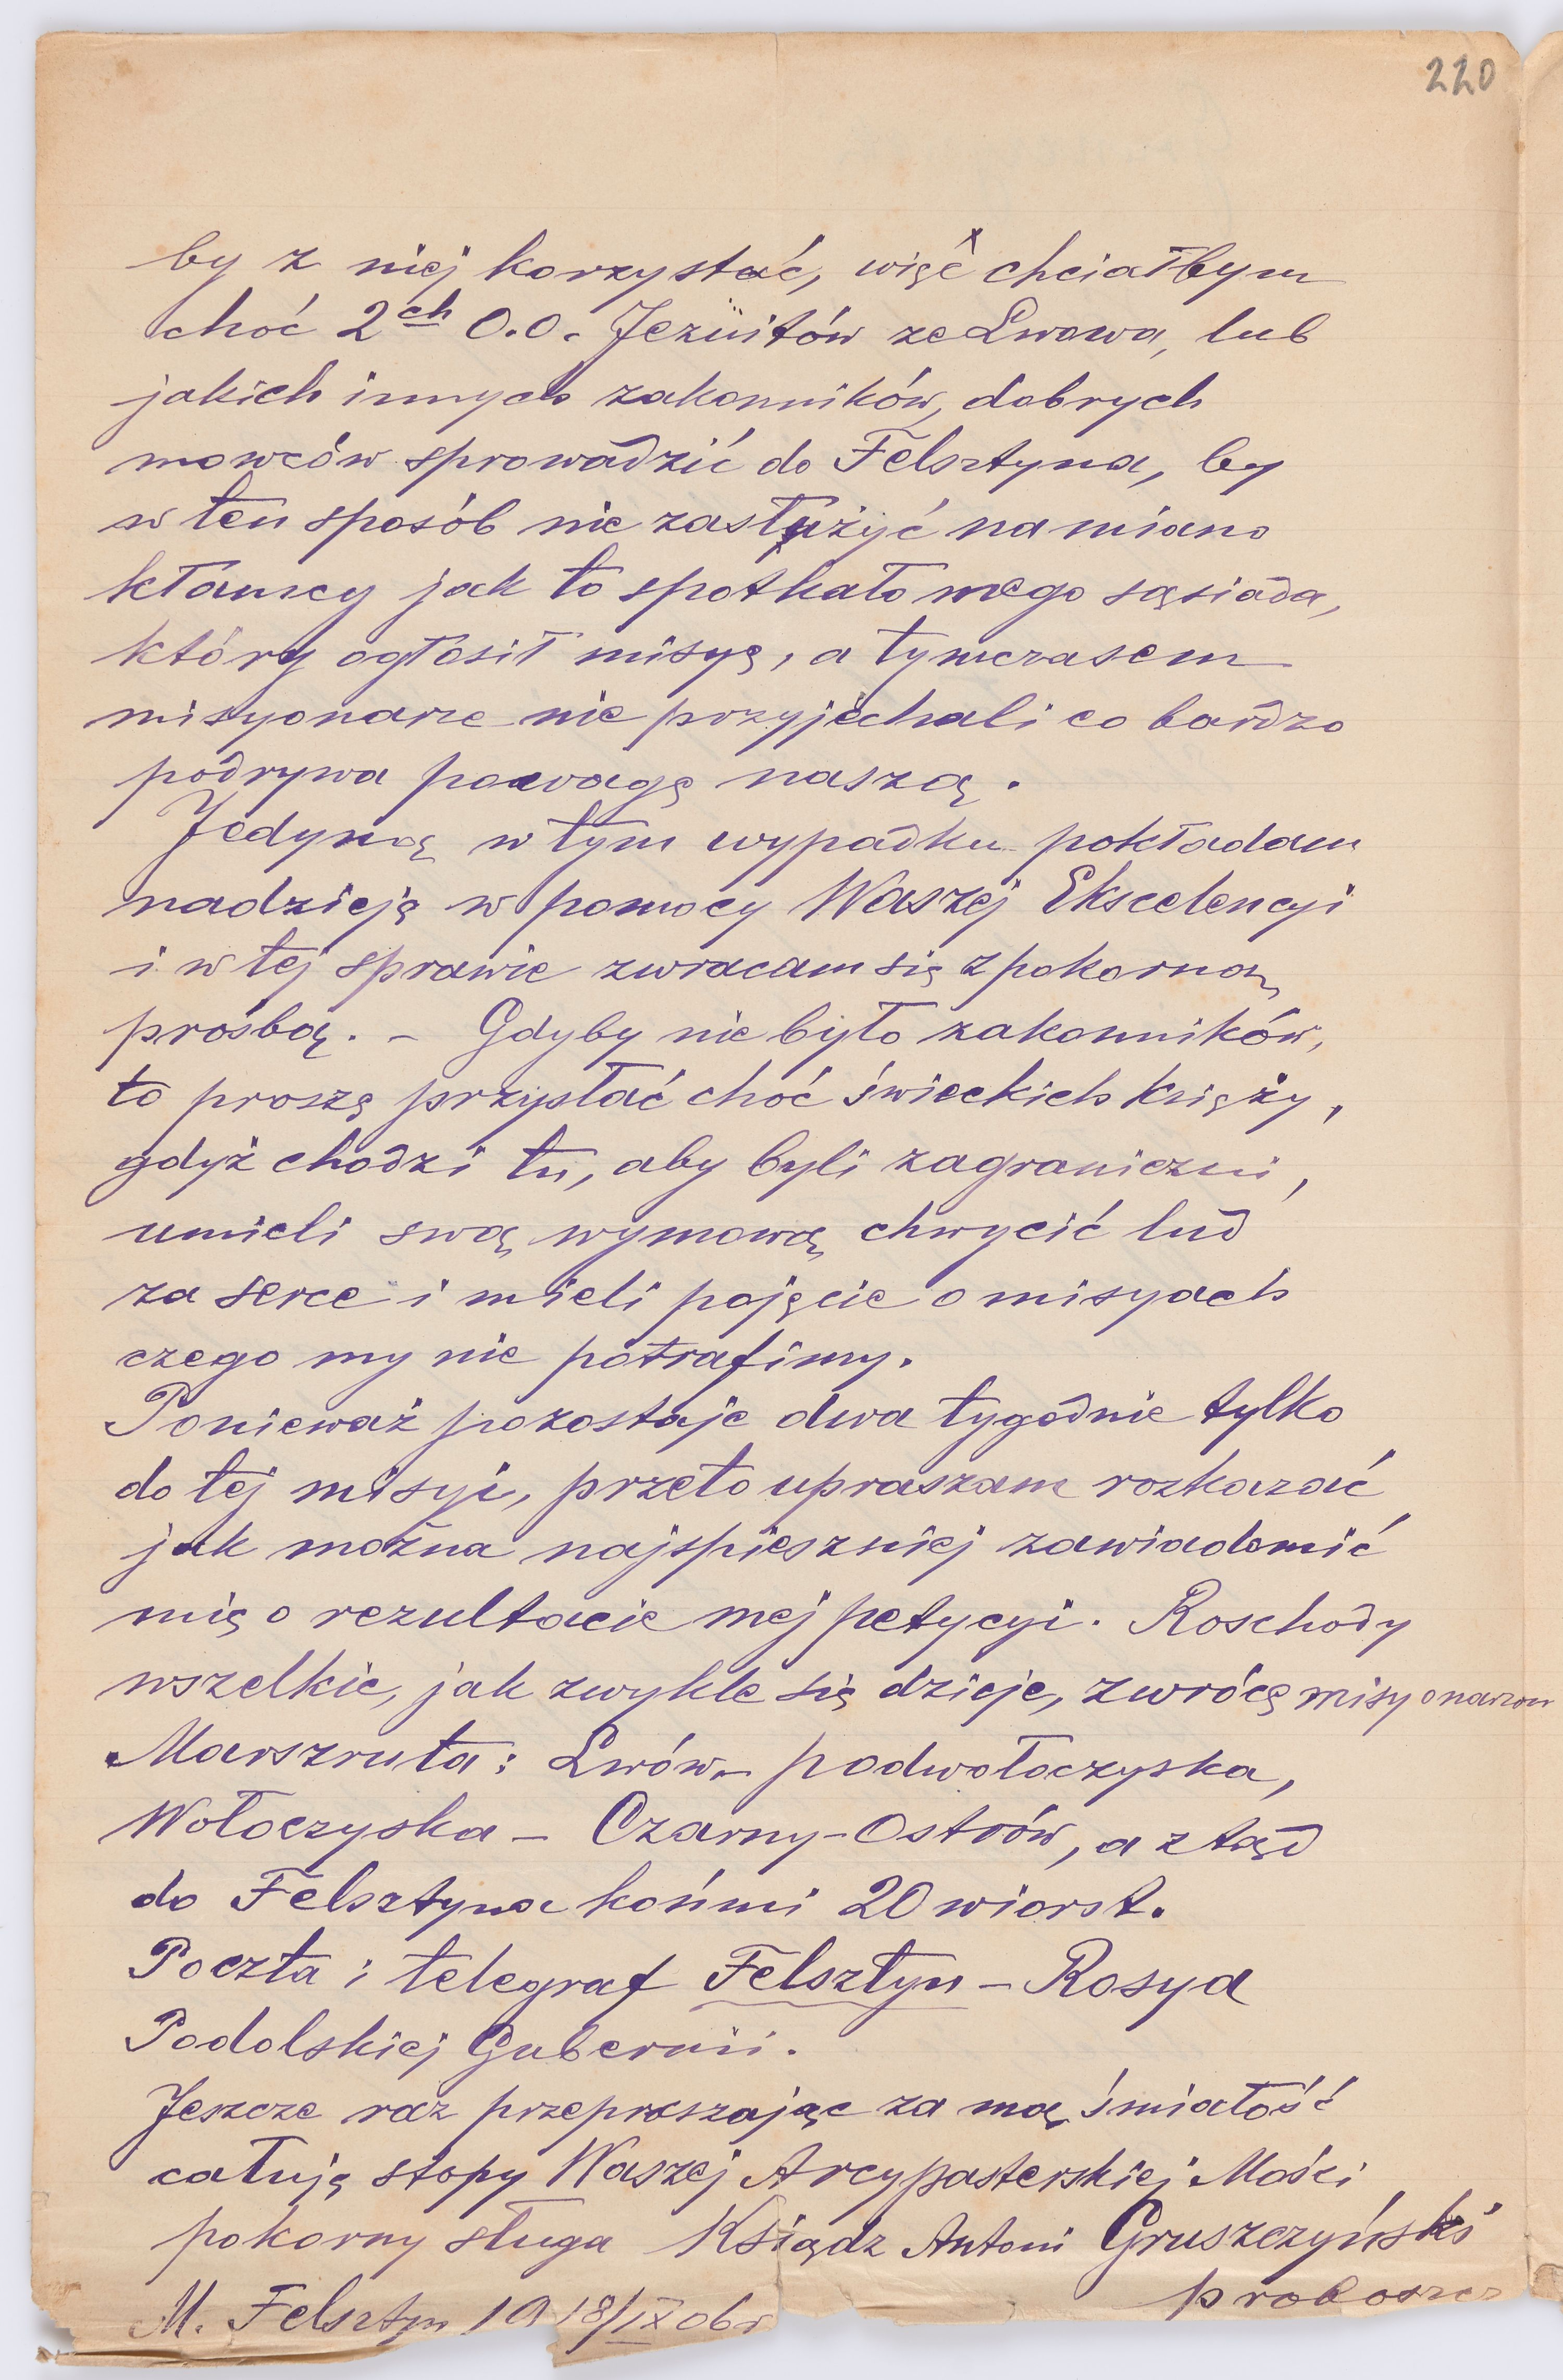 220
by z niej korzystać, więc chciałbym
choć 2ch O.O. Jezuitów ze Lwowa, lub
jakich innych zakonników, dobrych
mowców sprowadzić do Felsztyna, by
w ten sposób nie zasłużyć na miano
kłamcy jak to spotkało mego sąsiada,
który ogłosił misyę, a tymczasem
misyonarze nie przyjechali co bardzo
podrywa powagę naszą.
Jedyną w tym wypadku pokładam
nadzieję w pomocy Waszej Ekscelencyi
i w tej sprawie zwracam się z pokorną
prośbą. – Gdyby nie było zakonników,
to proszę przysłać choć świeckich księży,
gdyż chodzi tu, aby byli zagraniczni,
umieli swą wymową chwycić lud
za serce i mieli pojęcie o misyach
czego my nie potrafimy.
Ponieważ pozostaje dwa tygodnie tylko
do tej misyi, przeto upraszam rozkazać
jak można najspieszniej zawiadomić
mię o rezultacie mej petycyi. Roschody
wszelkie, jak zwykle się dzieje, zwrócę misyonarzom
Marszruta: Lwów – podwołoczyska,
Wołoczyska – Czarny-Ostrów, a ztąd
do Felsztyna końmi 20 wiorst.
Poczta i telegraf Felsztyn – Rosya
Podolskiej Gubernii.
Jeszcze raz przepraszając za mą śmiałość
całuję stopy Waszej Arcypasterskiej Mości
pokorny sługa Ksiądz Antoni Gruszczyński
proboszcz
M. Felsztyn 19 18/IX 06 r